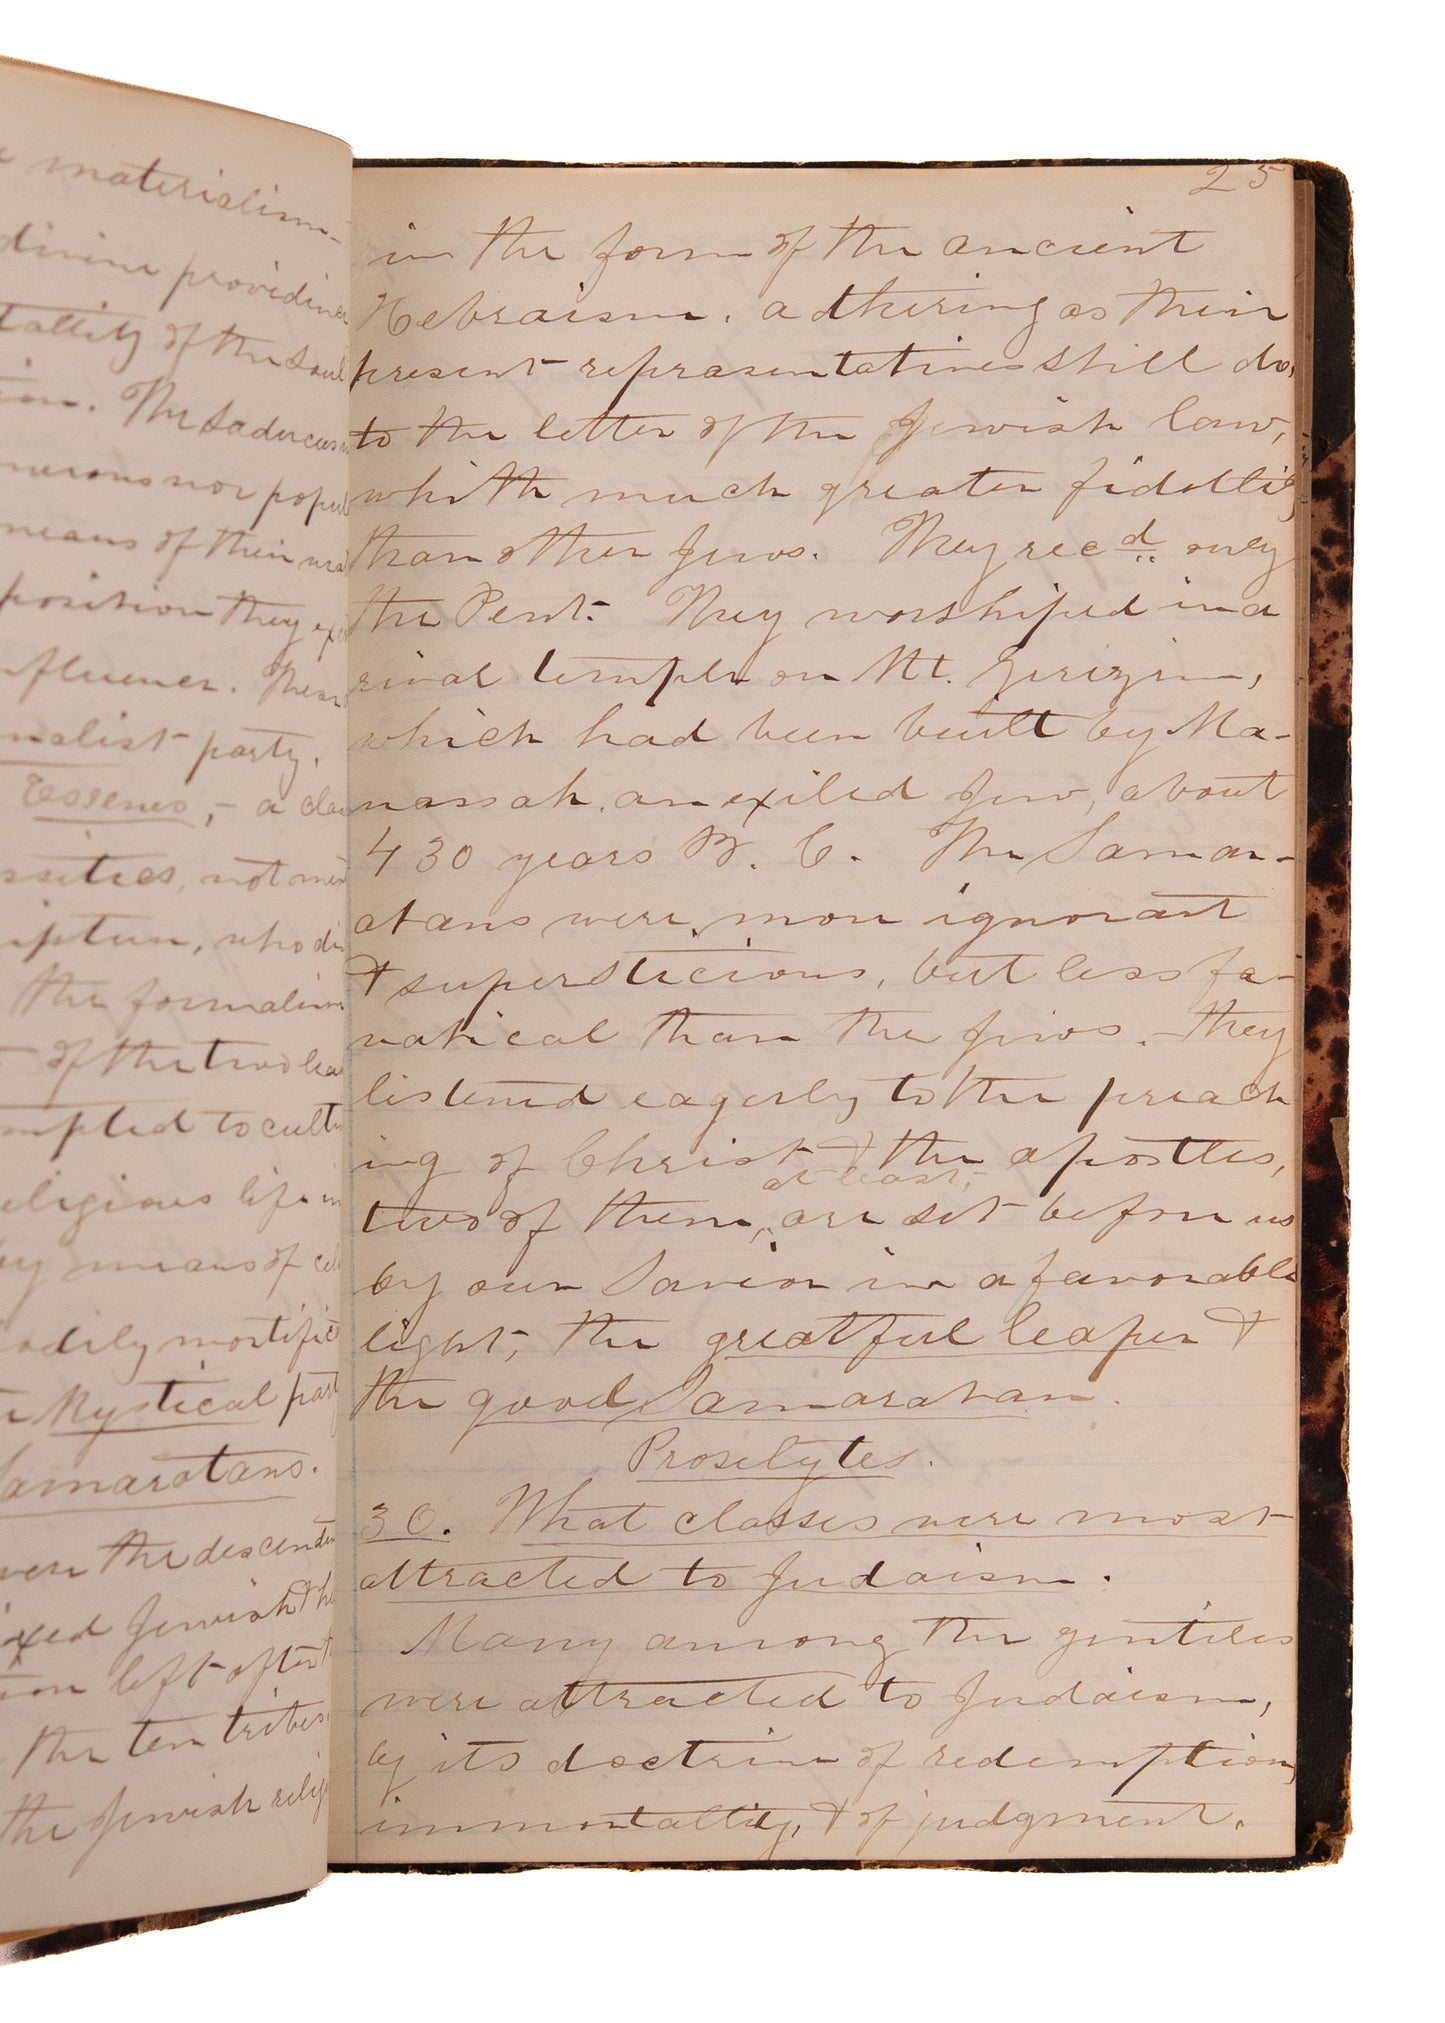 materialism-
divine providence
tallity of the soul
ion. The Saducees
nerous nor popul
means of their
position they
nfluence. These
nalist party.
Essenes,- a
ssities, not
ipture, who
the formalism
of the two
mpted to
eligious life
by means of
odily mortific
Mystical part
Samaratans.
were the descenden
ixed Jewish &
ion left after
the ten tribes.
the Jewish relig
25
in the form of the ancient
Hebraism, adhering as their
present representatives still do,
to the letter of the Jewish law,
whith much greater fidellity
than other Jews. They recd only
the Pent. They worshiped in a
rival temple on Mt. Gerizim,
which had been built by Ma-
nassah, an exiled Jew, about
430 years B. C. The Samar-
atans were more ignorant
& superstitious, but less fa-
natical than the Jews. They
listened eagerly to the preach
ing of Christ & the apostles,
at least,
two of them, are set before us
by our Savior in a favorable
light, the greatful leaper &
the good Samaratan.
Proselytes.
30. What classes were most
attracted to Judaism.
Many among the gentiles
were attracted to Judaism,
by its doctrine of redemption,
immortallity, & of judgment.